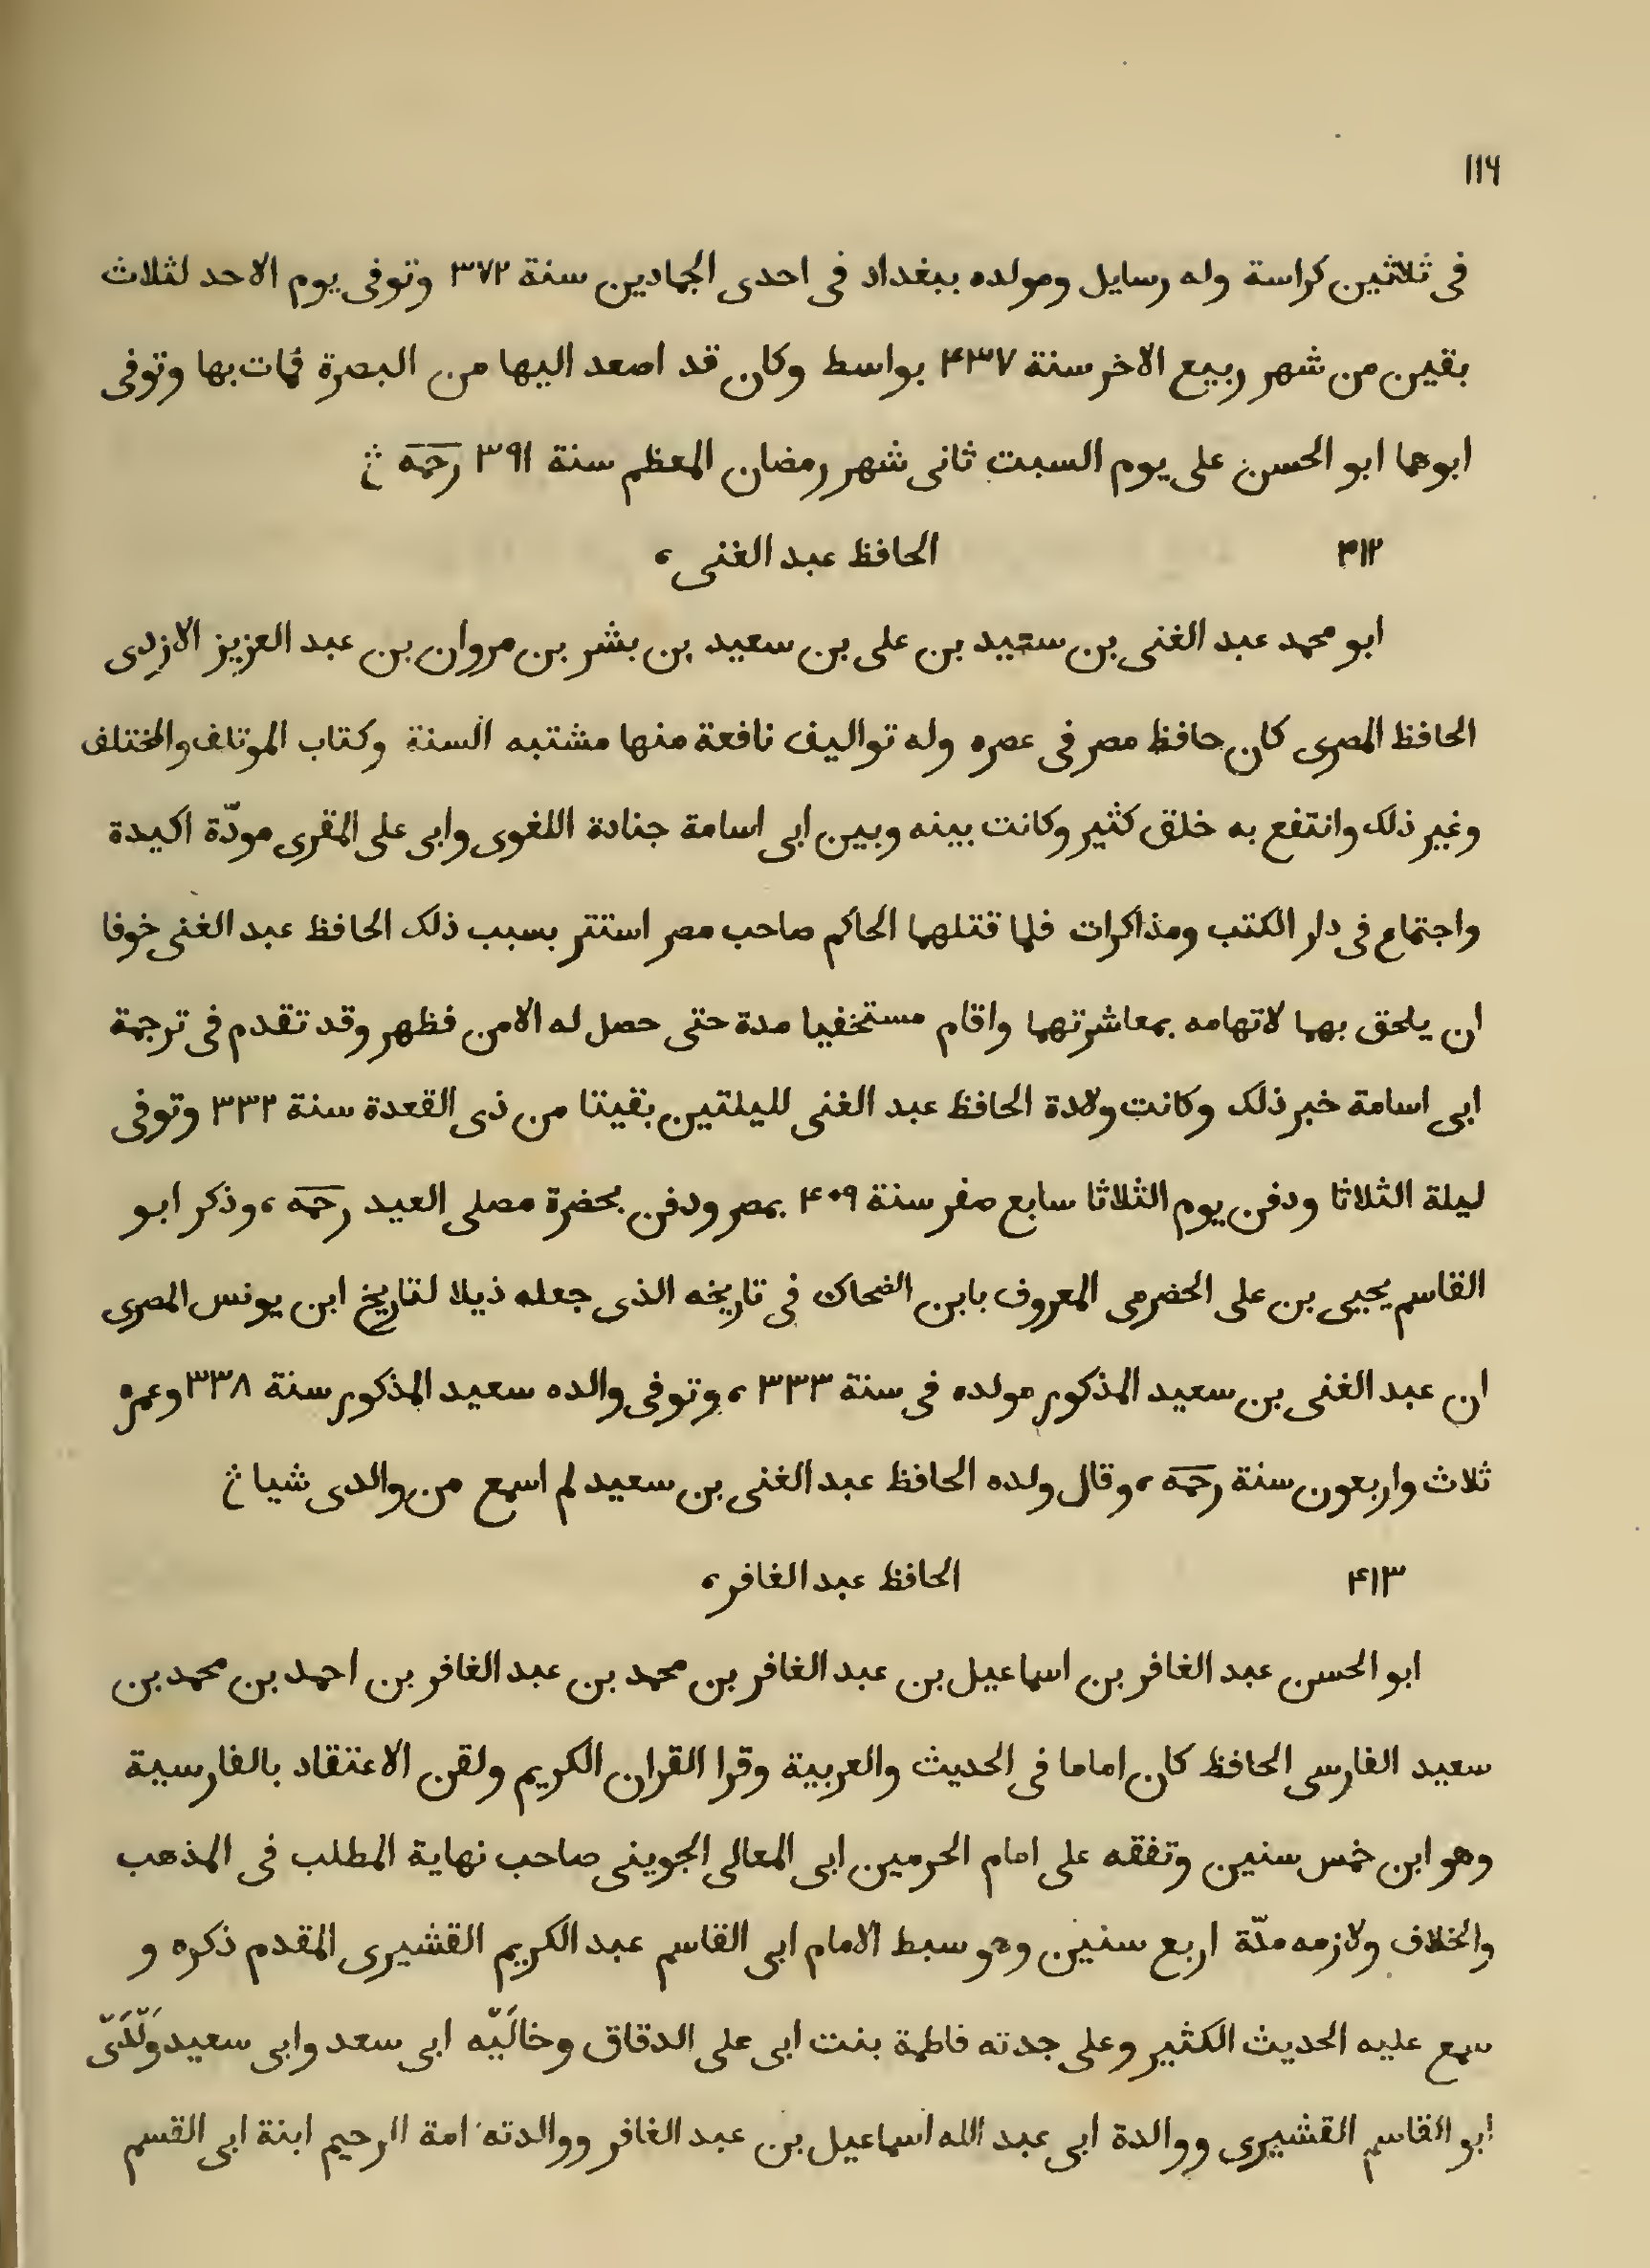 ١١٦
فى ثلاثين كراسة وله رسايل ومولده ببغداد فى احدى الجمادين سنة ٣٧٢ وتوفى يوم الاحد لثلاث
بقين من شهر ربيع الاخر سنة ۴٣٧ بواسط وكان قد اصعد اليها من البصرة فمات بها وتوفى
ابوهما ابو الحسن على يوم السبت ثانى شهر رمضان المعظم سنة ٣٩١ رحمه
۴١٢ الحافظ عبد الغنى،
ابو محمد عبد الغنى بن سعيد بن على بن سعيد بن بشر بن مروان بن عبد العزيز الازدى
الحافظ المصرى كان حافظ مصر فى عصره وله تواليف نافعة منها مشتبه السنة وكتاب الموتلف والمختلف
وغير ذلك وانتفع به خلق كثير وكانت بينه وبين ابى اسامة جنادة اللغوى وابى على المقرى مودّة اكيدة
واجتماع فى دار الكتب ومذاكرات فلما قتلهما الحاكم صاحب مصر استتر بسبب ذلك الحافظ عبد الغنى خوفا
ان يلحق بهما لاتهامه بمعاشرتهما واقام مستخفيا مدة حتى حصل له الامن فظهر وقد تقدم فى ترجمة
ابى اسامة خبر ذلك وكانت ولادة الحافظ عبد الغنى لليلتين بقيتا من ذى القعدة سنة ٣٣٢ وتوفى
ليلة الثلاثا ودفن يوم الثلاثا سابع صفر سنة ۴٠٩ بمصر ودفن بحضرة مصلى العيد رحمه، وذكر ابو
القاسم يحيى بن على الحضرمى المعروف بابن الضحاك فى تاريخه الذى جعله ذيلا لتاريخ ابن يونس المصرى
ان عبد الغنى بن سعيد المذكور مولده فى سنة ٣٣٣، وتوفى والده سعيد المذكور سنة ٣٣٨ وعمره
ثلاث واربعون سنة رحمه، وقال ولده الحافظ عبد الغنى بن سعيد لم اسمع من والدى شيا
۴١٣ الحافظ عبد الغافر،
ابو الحسن عبد الغافر بن اسماعيل بن عبد الغافر بن محمد بن عبد الغافر بن احمد بن محمد بن
سعيد الفارسى الحافظ كان اماما فى الحديث والعربية وقرا القران الكريم ولقن الاعتقاد بالفارسية
وهو ابن خمس سنين وتفقه على امام الحرمين ابى المعالى الجوينى صاحب نهاية المطلب فى المذهب
والخلاف ولازمه مدّة اربع سنين وهو سبط الامام ابى القاسم عبد الكريم القشيرى المقدم ذكره و
سمع عليه الحديث الكثير وعلى جدته فاطمة بنت ابى على الدقاق وخالَيْه ابى سعد وابى سعيد وَلَدَىْ
ابو القاسم القشيرى ووالدة ابى عبد الله اسماعيل بن عبد الغافر ووالدته امة الرحيم ابنة ابى القسم